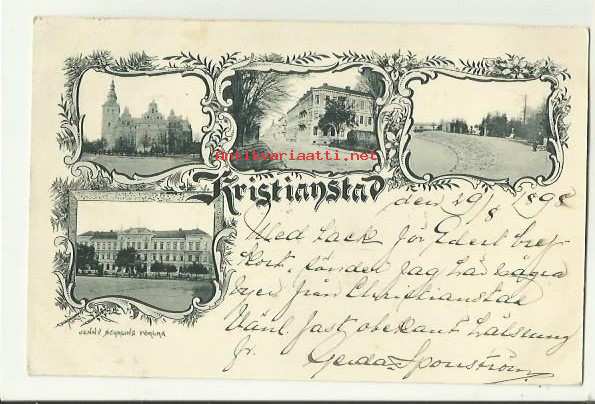 antikvariaatti.net
Kristianstad
den 29/8 1898
Med tack för Edert bref-
kort, sänder jag här några
vyer från Christianstad
Vänl. fast obekant hälsning
fr. Gerda Sponström
JENNY BERGLINS FÖRLAG